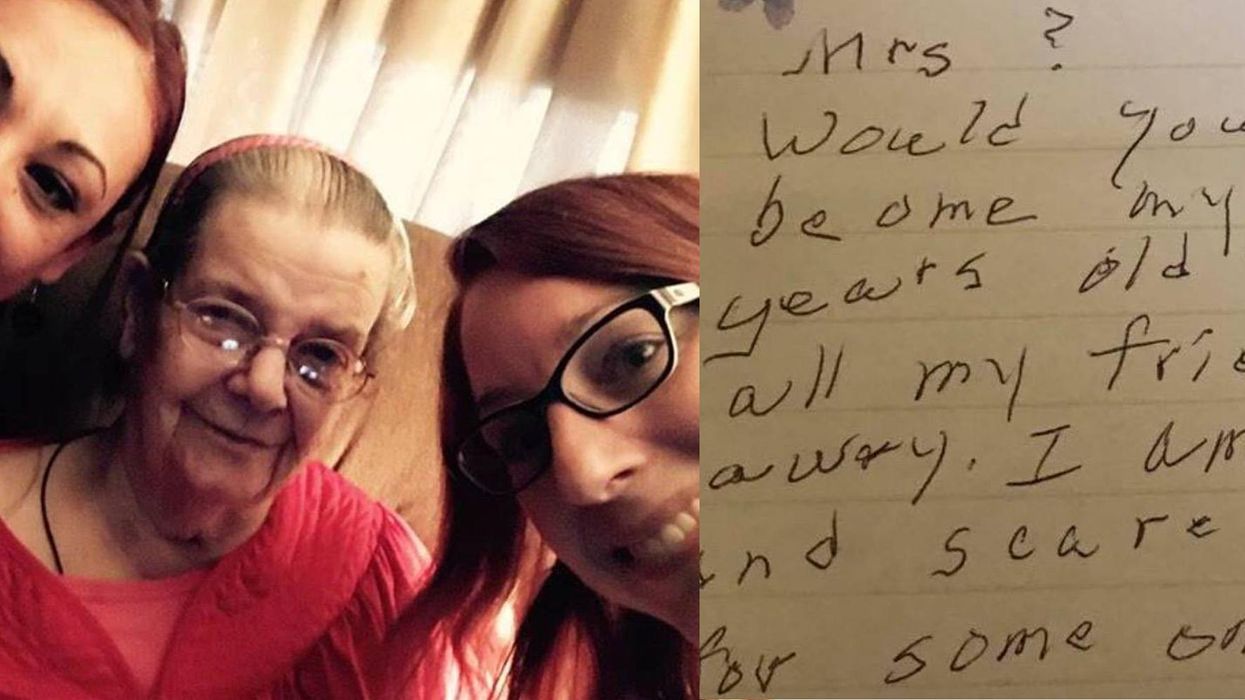 Mrs ?
Would you
become my
years old
all my frie
away. I am
and scare
for some on